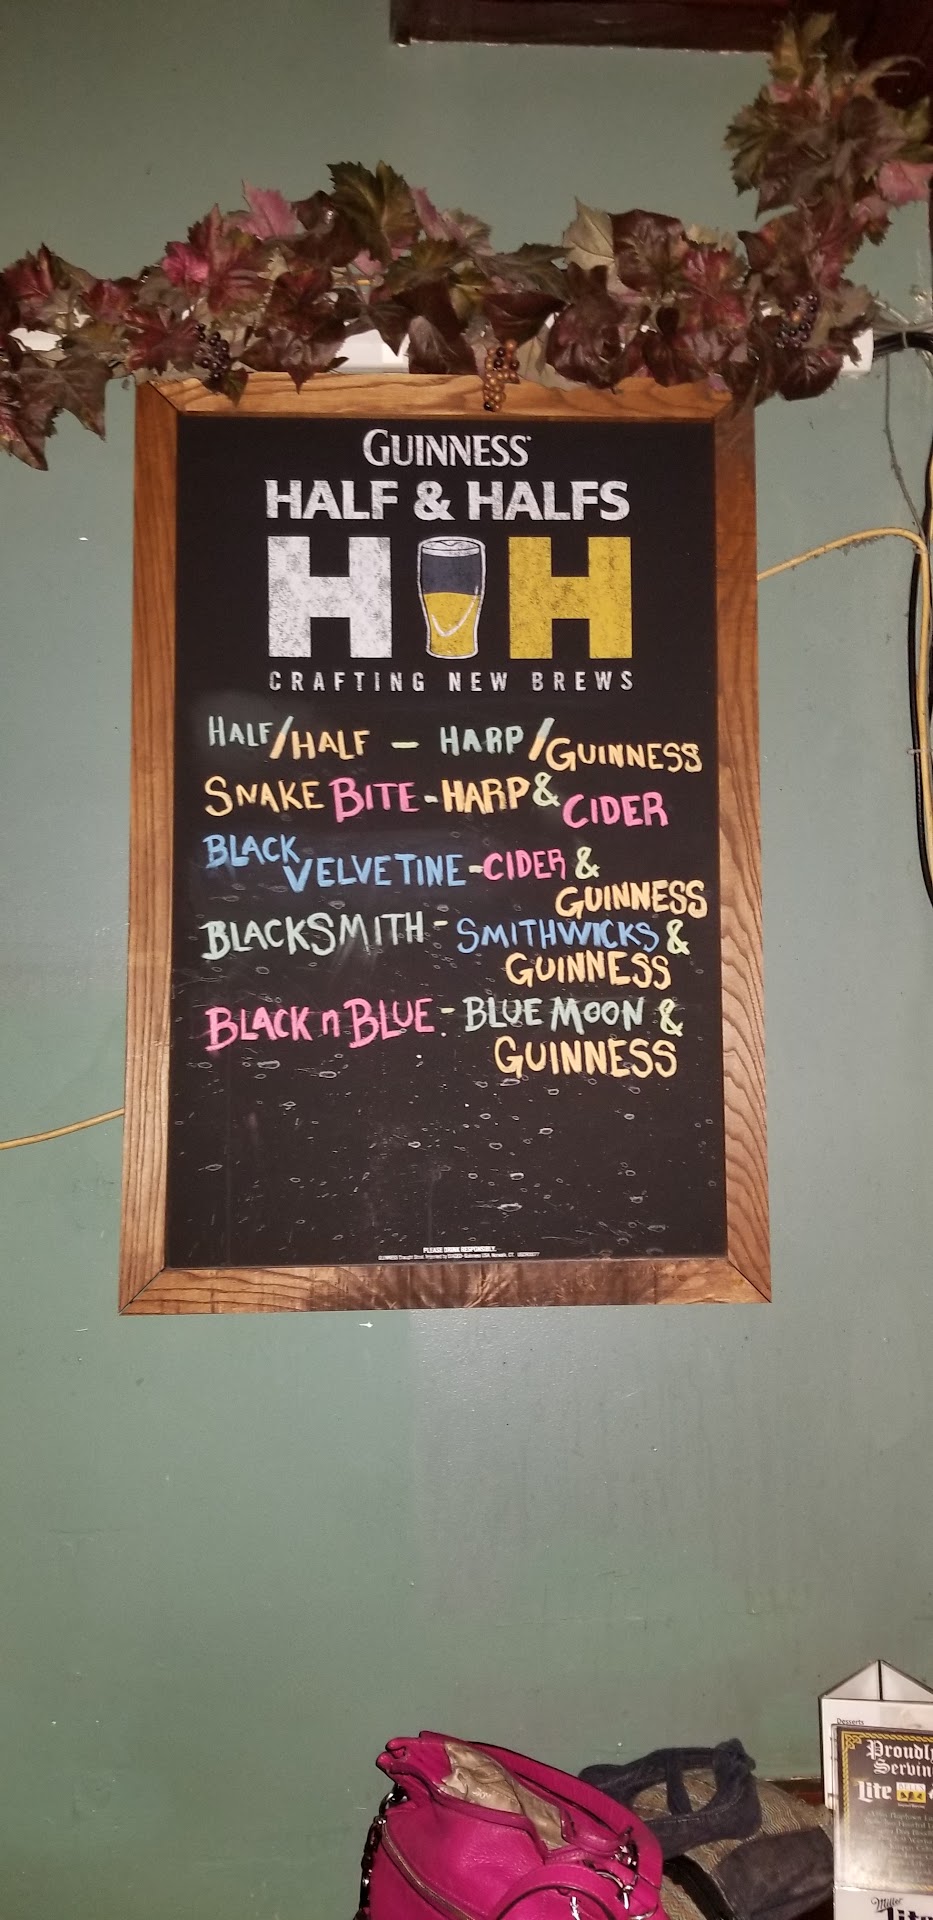 GUINNESS
HALF & HALFS
H H
CRAFTING NEW BREWS
HALF/HALF - HARP/GUINNESS
SNAKE BITE - HARP & CIDER
BLACK VELVETINE - CIDER &
GUINNESS
BLACKSMITH - SMITHWICKS &
GUINNESS
BLACK n BLUE - BLUE MOON &
GUINNESS
PLEASE DRINK RESPONSIBLY.
Desserts
Proudly
Servin
Lite
BELL'S
Miller
Lite